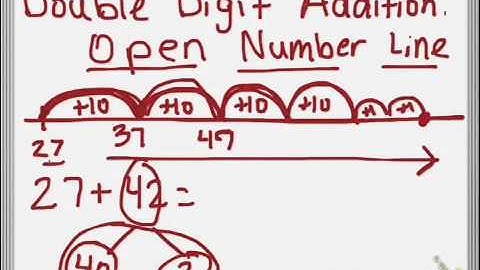 Double Digit Addition:
Open Number Line
+10 +10 +10 +10 +1 +1
27 37 47
27+42=
40 2